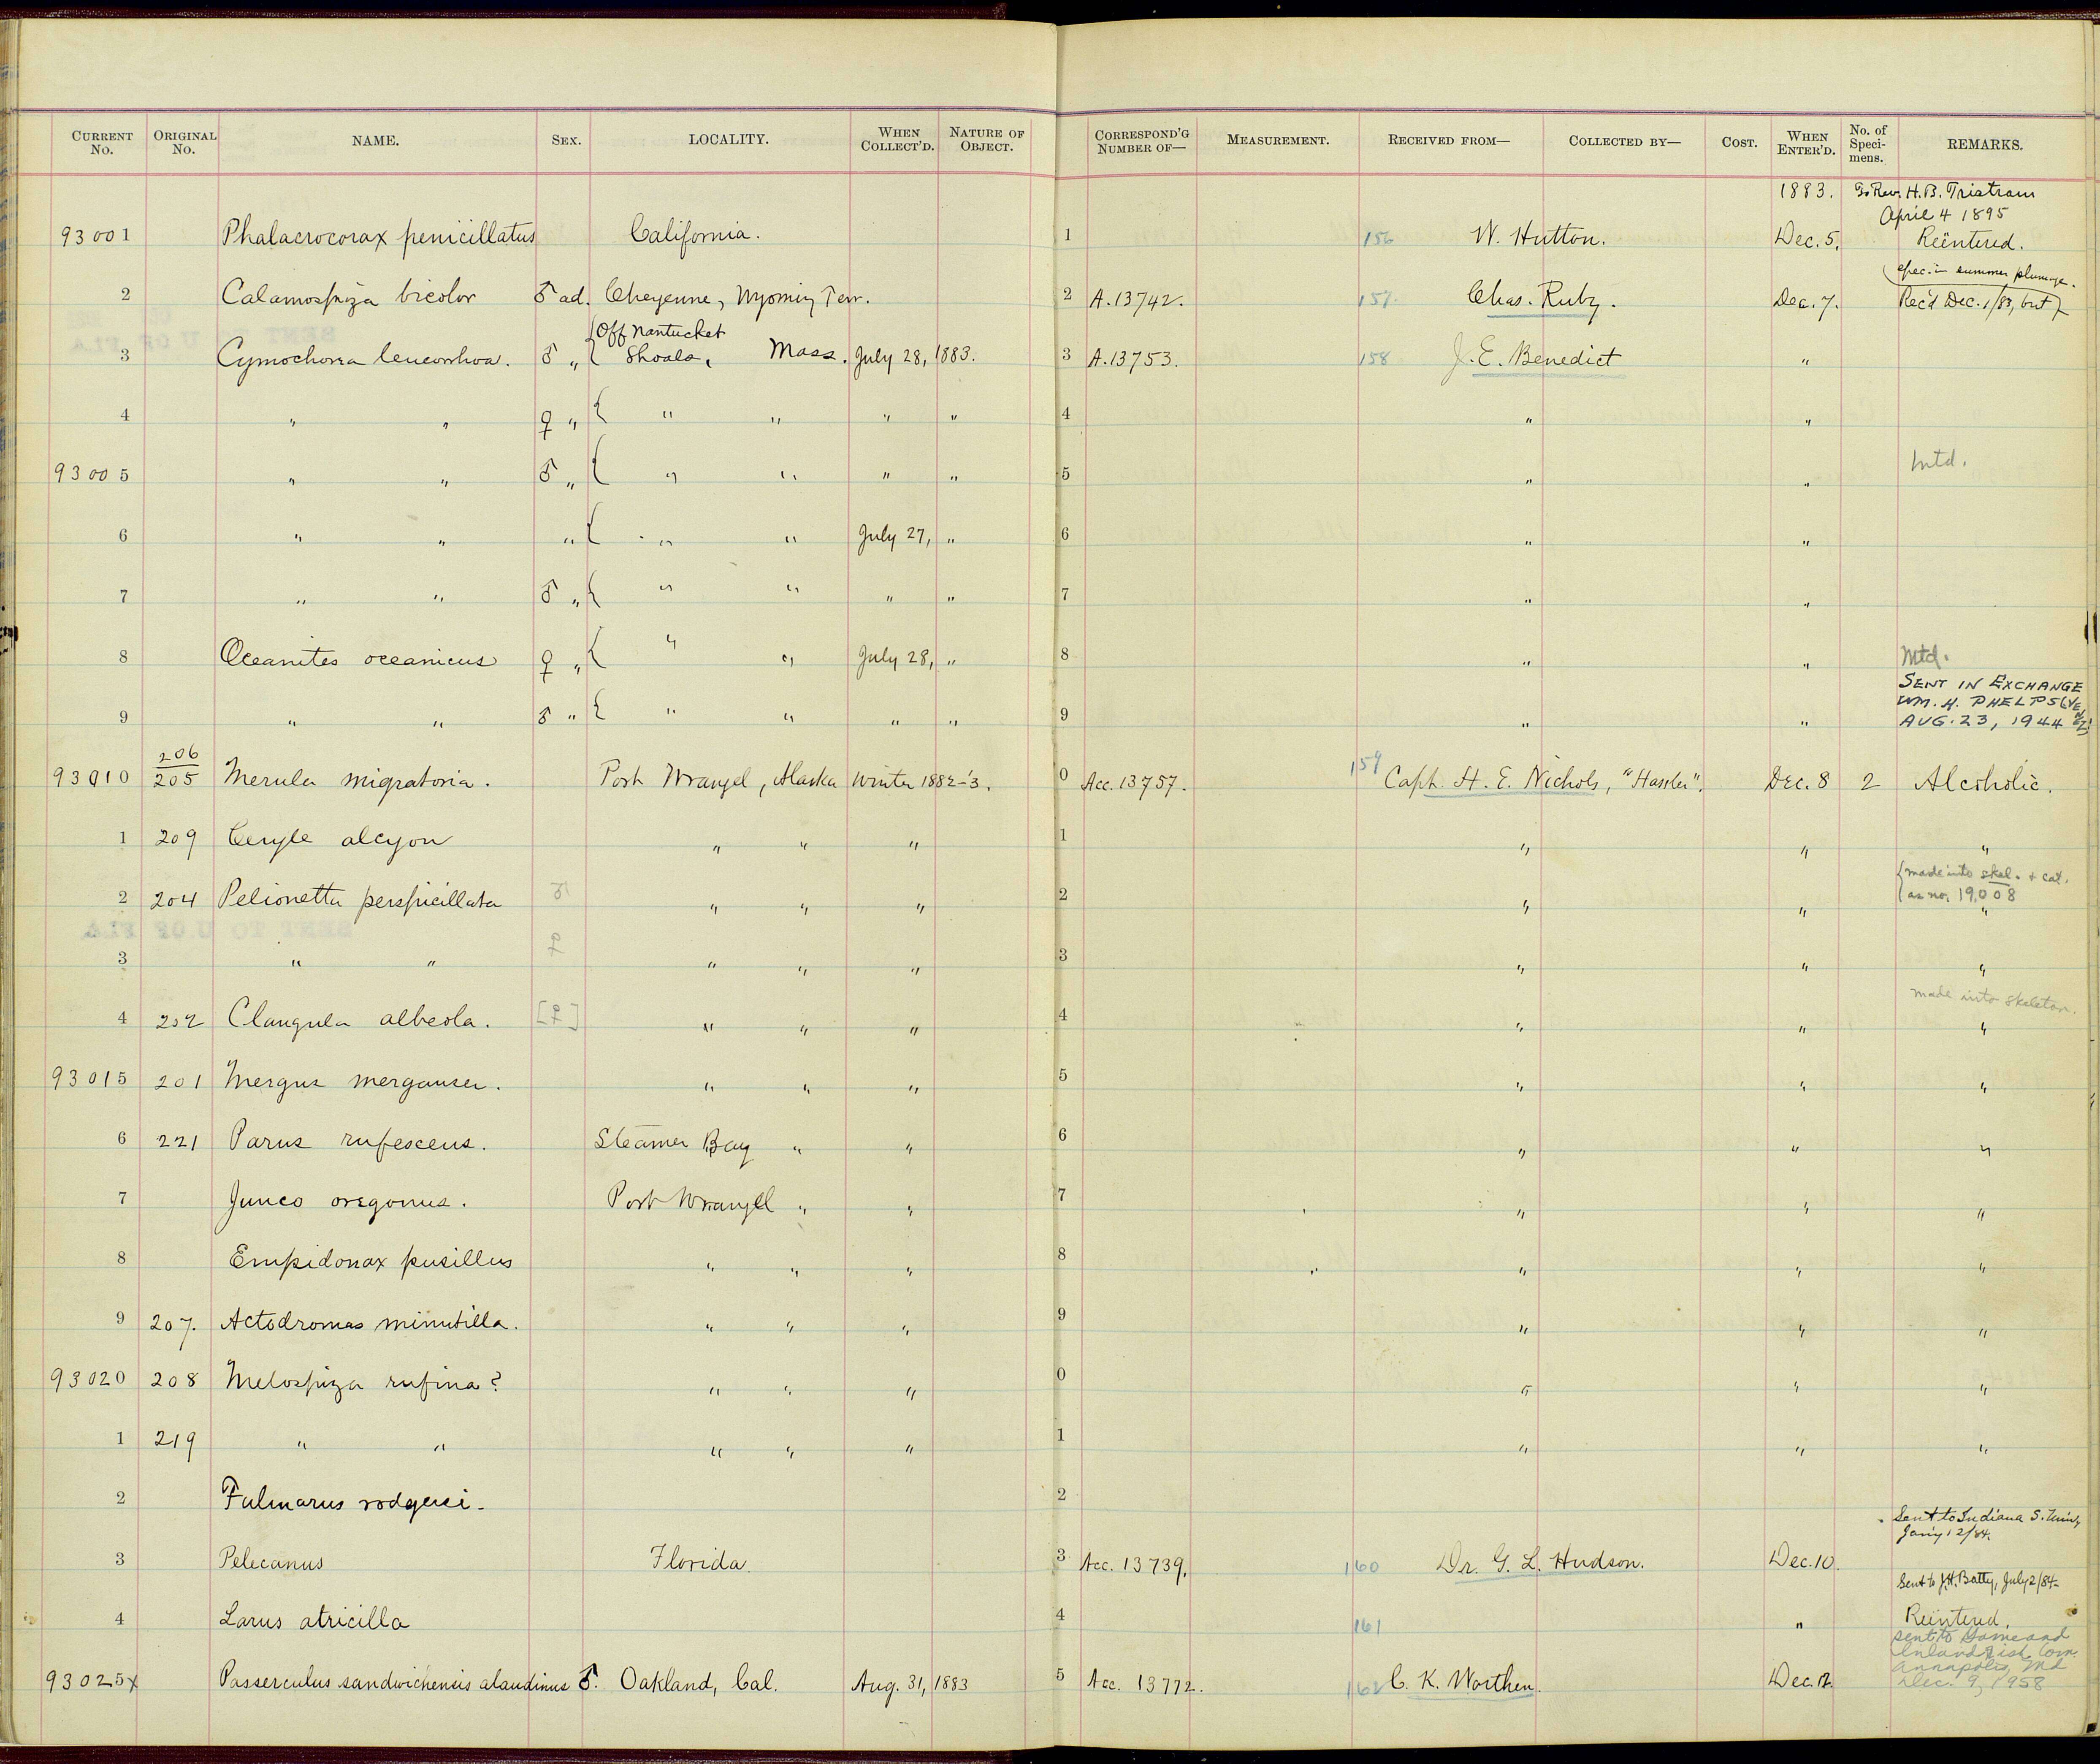 CURRENT No. ORIGINAL No. NAME. SEX. LOCALITY. WHEN COLLECT'D. NATURE OF OBJECT. CORRESPOND'G NUMBER OF— MEASUREMENT. RECEIVED FROM— COLLECTED BY— COST. WHEN ENTER'D. No. of Specimens. REMARKS.
1883. To Rev. H.B. Tristram
April 4 1895
93001 Phalacrocorax penicillatus California. 1 156 W. Hutton. Dec. 5. Reëntered.
spec. in summer plumage.
2 Calamospiza bicolor ♂ ad. Cheyenne, Wyoming Terr. 2 A.13742. 157. Chas. Ruby. Dec. 7. Rec'd Dec. 1/83, but
Off Nantucket
3 Cymochorea leucorrhoa. ♂ „ Shoals, Mass. July 28, 1883. 3 A.13753. 158 J. E. Benedict „
4 „ „ ♀ „ { „ „ „ „ 4 „ „
93005 „ „ ♂ „ { „ „ „ „ 5 „ „ Mtd.
6 „ „ „ { „ „ July 27, „ 6 „ „
7 „ „ ♂ „ { „ „ „ „ 7 „ „
8 Oceanites oceanicus ♀ „ { „ „ July 28, „ 8 „ „ Mtd.
SENT IN EXCHANGE
WM. H. PHELPS (VENEZ.)
9 „ „ ♂ „ { „ „ „ „ 9 „ „ AUG. 23, 1944
206
93010 205 Merula migratoria. Port Wrangel, Alaska Winter 1882-'3. 0 Acc. 13757. 159 Capt. H. E. Nichols, "Hassler". Dec. 8 2 Alcoholic.
1 209 Ceryle alcyon „ „ „ 1 „ „ „
made into skel. + cat.
as no. 19,008
2 204 Pelionetta perspicillata ♂ „ „ „ 2 „ „ „
SENT TO U.OF FLA
3 „ „ ♀ „ „ „ 3 „ „ „
made into skeleton.
4 202 Clangula albeola. [♀] „ „ „ 4 „ „ „
93015 201 Mergus merganser. „ „ „ 5 „ „ „
6 221 Parus rufescens. Steamer Bay „ „ 6 „ „ „
7 Junco oregonus. Port Wrangell „ „ 7 „ „ „
8 Empidonax pusillus „ „ „ 8 „ „ „
9 207. Actodromas minutilla. „ „ „ 9 „ „ „
93020 208 Melospiza rufina? „ „ „ 0 „ „ „
1 219 „ „ „ „ „ 1 „ „ „
2 Fulmarus rodgersi. 2
Sent to Indiana S. Univ.
Jan'y 12/84.
3 Pelecanus Florida. 3 Acc. 13739, 160 Dr. G. L. Hudson. Dec. 10.
Sent to J.H. Batty, July 2/84.
4 Larus atricilla 4 161 „ Reëntered.
Sent to Game and
Inland Fish Com.
Annapolis, Md
93025x Passerculus sandwichensis alaudinus ♂. Oakland, Cal. Aug. 31, 1883 5 Acc. 13772. 162 C. K. Worthen. Dec. 12. Dec. 9, 1958